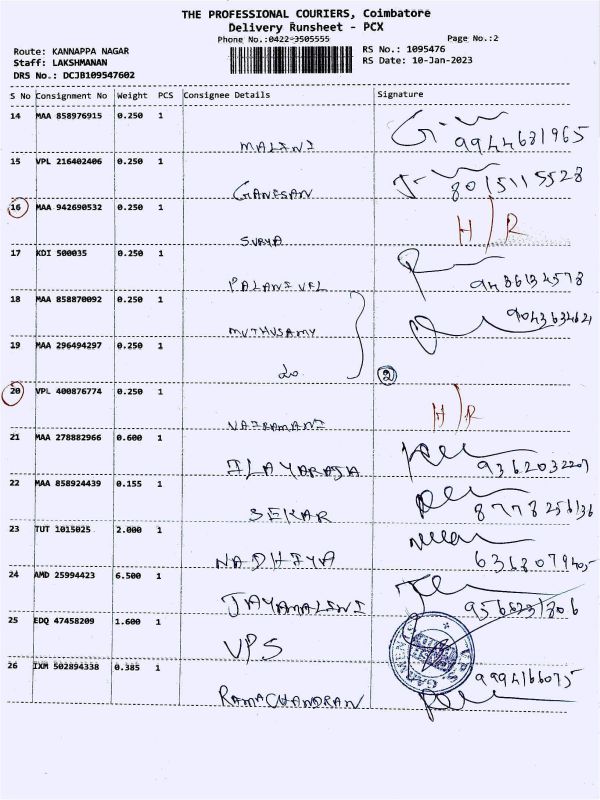 THE PROFESSIONAL COURIERS, Coimbatore
Delivery Runsheet - PCX
Phone No.:0422-3505555
Page No.:2
Route: KANNAPPA NAGAR
RS No.: 1095476
Staff: LAKSHMANAN
RS Date: 10-Jan-2023
DRS No.: DCJB109547602
S No Consignment No Weight PCS Consignee Details Signature
14 MAA 858976915 0.250 1
MALINI 9944631965
15 VPL 216402406 0.250 1
GANESAN 8015115528
16 MAA 942690532 0.250 1
SURYA H/R
17 KDI 500035 0.250 1
PALANIVEL 9486134578
18 MAA 858870092 0.250 1
MUTHUSAMY
19 MAA 296494297 0.250 1
do 2
20 VPL 400876774 0.250 1
VAIRAMANI H/R
21 MAA 278882966 0.600 1
ILAYARAJA 9362032207
22 MAA 858924439 0.155 1
SEKAR 8778256136
23 TUT 1015025 2.000 1
NADHIYA
24 AMD 25994423 6.500 1
JAYAMALINI
25 EDQ 47458209 1.600 1
VPS
26 IXM 502894338 0.385 1
RAMACHANDRAN 9994166075